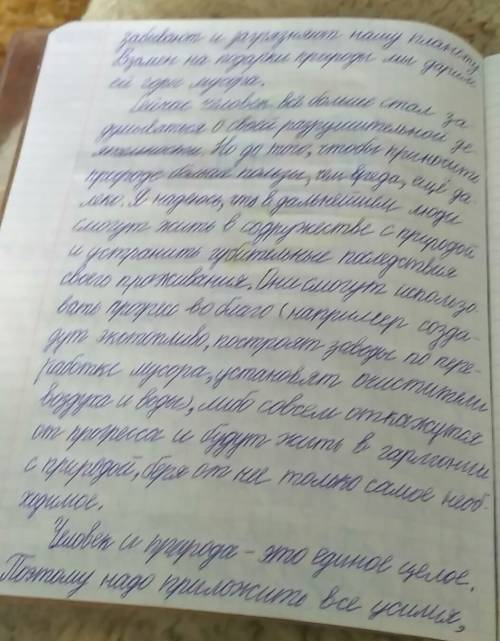 забивают и загрязняют нашу планету.
Взамен на подарки природы мы дарим
ей горы мусора.
Сейчас человек всё больше стал за
думываться о своей разрушительной де
ятельности. Но до того, чтобы приносить
природе больше пользы, чем вреда, ещё да-
леко. Я надеюсь, что в дальнейшем люди
смогут жить в содружестве с природой
и устранить губительные последствия
своего проживания. Они смогут использо-
вать прогресс во благо (например созда-
дут экотопливо, построят заводы по пере-
работке мусора, установят очистители
воздуха и воды), либо совсем откажутся
от прогресса и будут жить в гармонии
с природой, беря от нее только самое необ-
ходимое.
Человек и природа - это единое целое.
Поэтому надо приложить все усилия,